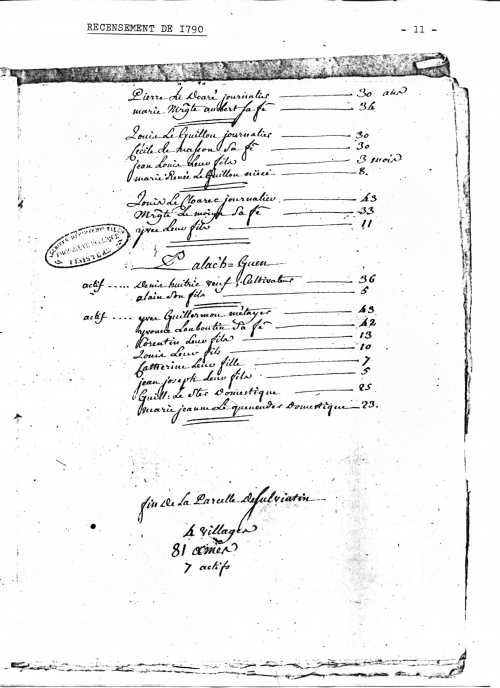 RECENSEMENT DE 1790 - 11 -
Pierre Le Doaré journalies 30 ans
marie Mrgte aubert sa fe 36
Louis Le Guillou journalies 30
Cécile de masson Sa fe 30
jean Louis Leur fils 3 mois
marie Renée Le Guillou niece 8.
Louis Le Cloarec journalier 43
Mrgte Le moign Sa fe 33
yves Leur fils 11
ARCHIVES DÉPARTEMENTALES
FINISTÈRE
Palach=Guen
actif ..... Denis huitric veuf, Cultivateur 36
alain Son fils 5
actif .... yves Guillermou métayer 43
yvonne Louboutin Sa fe 42
Corentin Leur fils 13
Louis Leur fils 10
Catherine Leur fille 7
jean joseph Leur fils 5
Guill: Le Domestique 25
marie jeanne Le queneudec Domestique 23.
fin De La Parcelle De Sulviatin
4 villages
81 ames
7 actifs